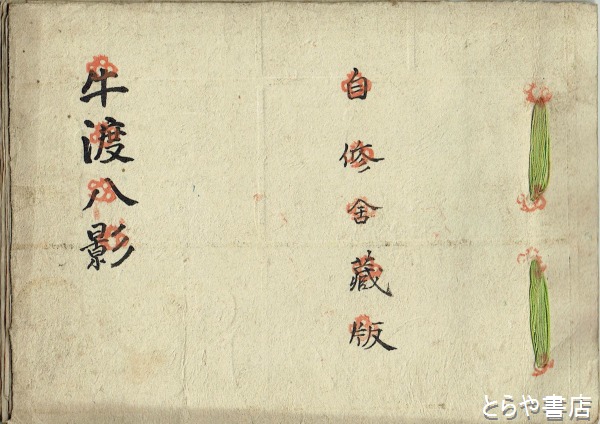 自修舍藏版
牛渡八影
とらや書店